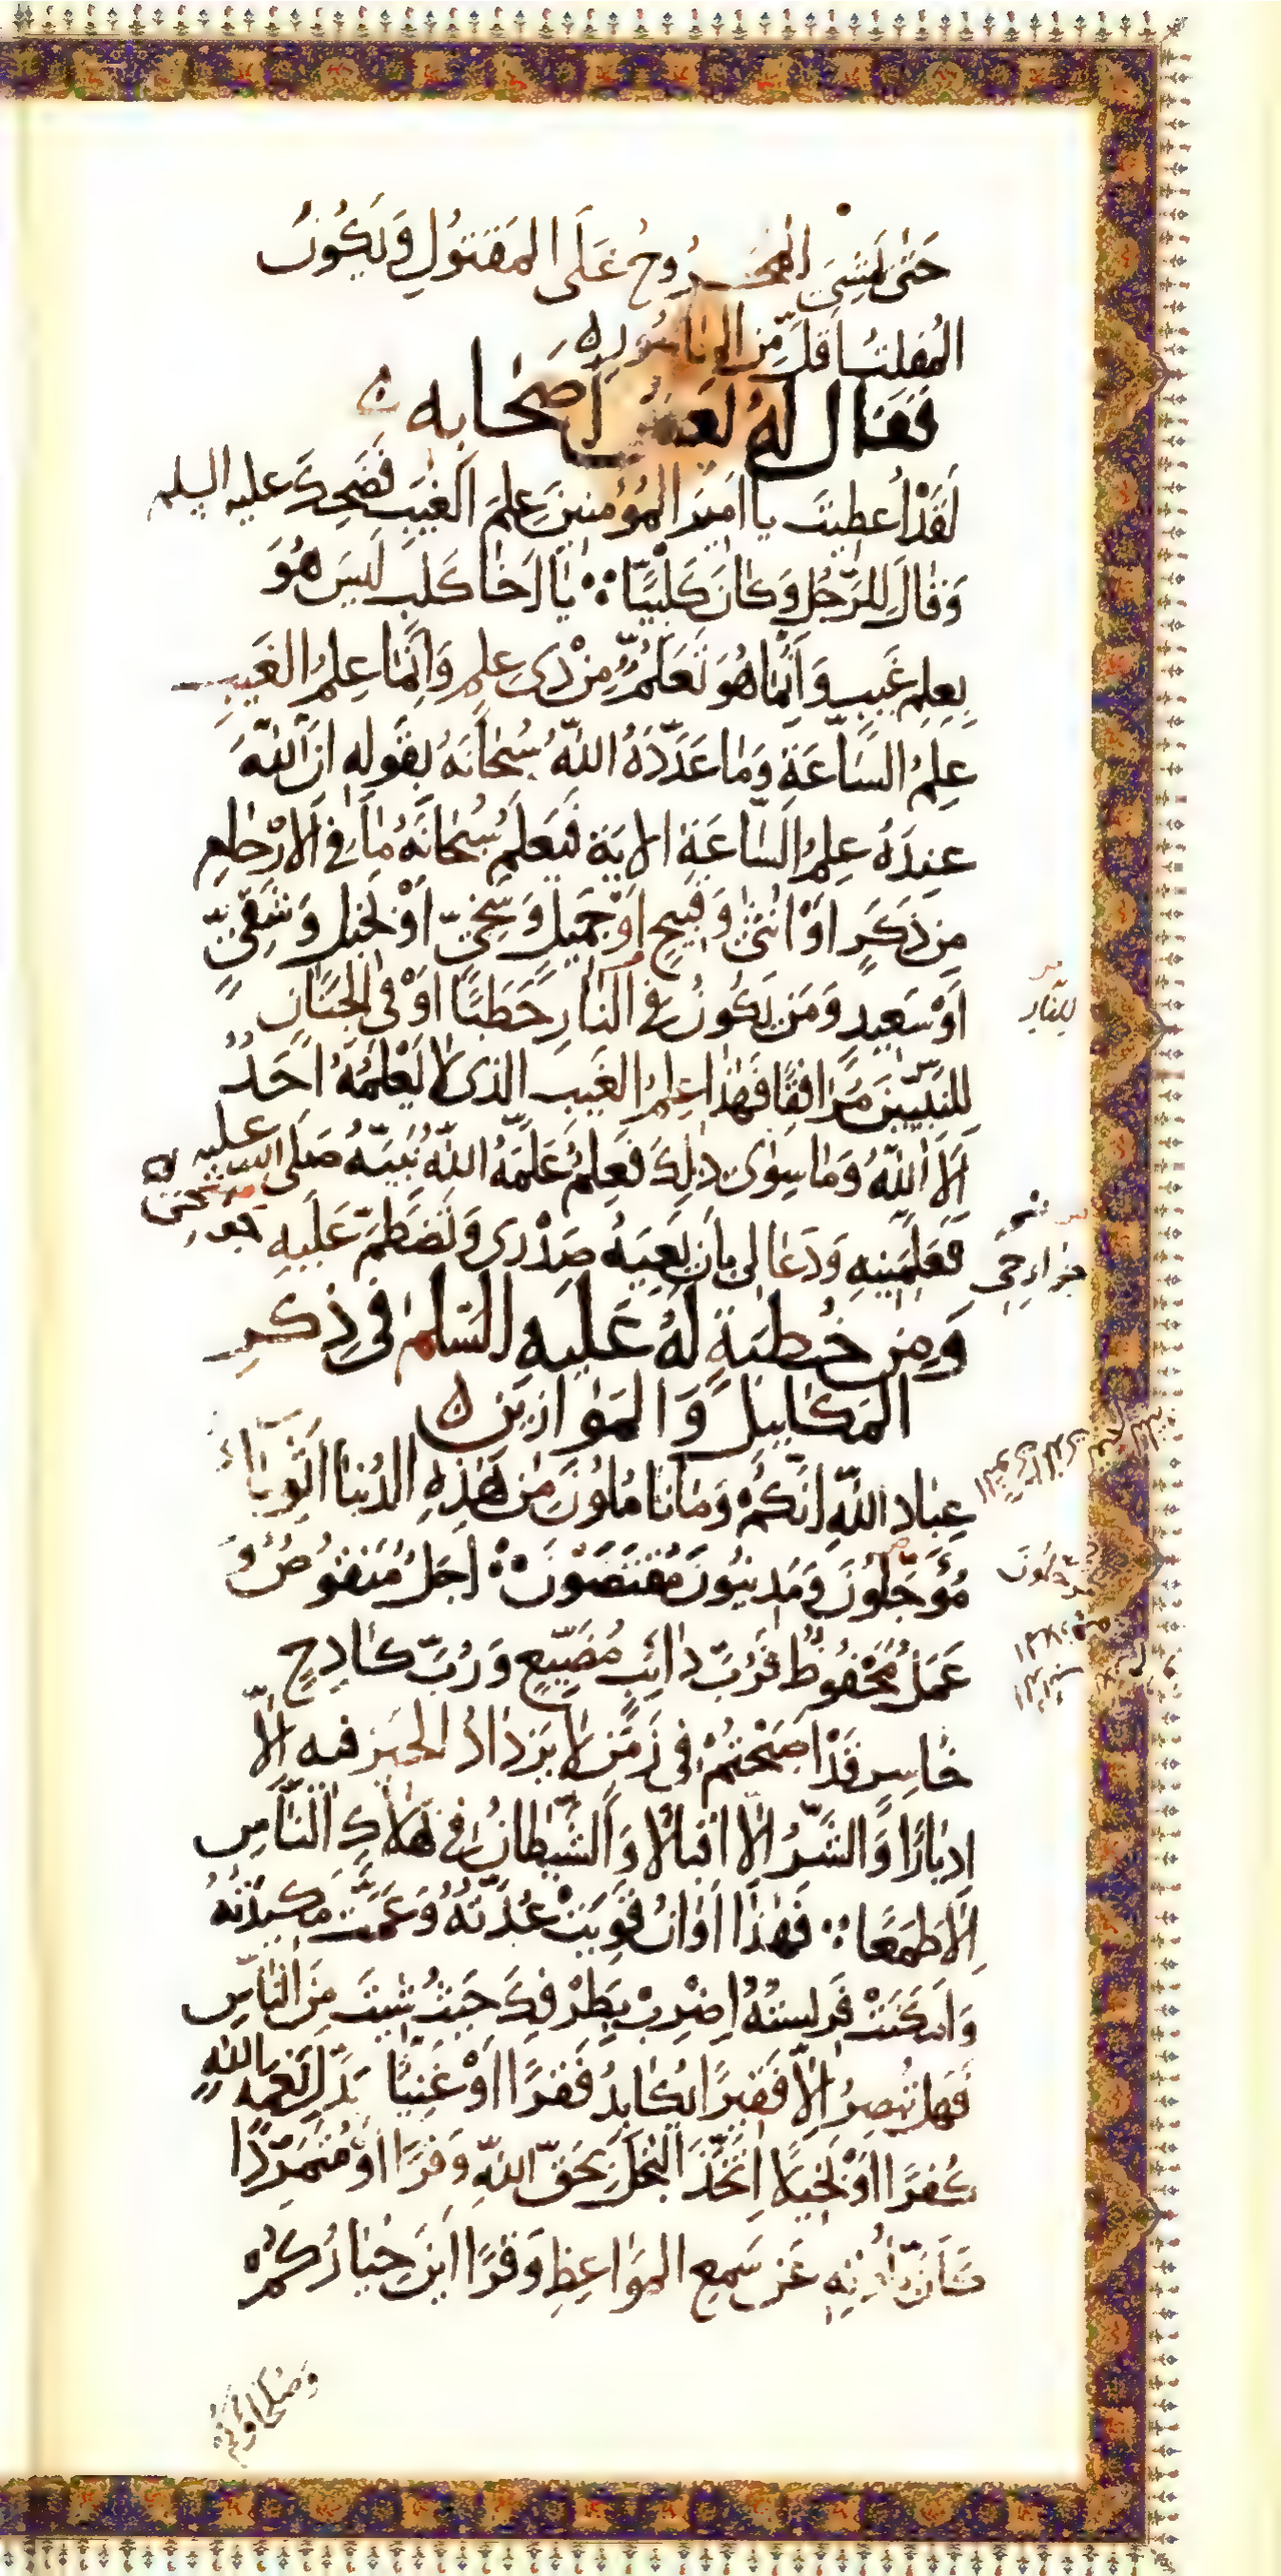 حَتّىٰ يَمْشِىَ المَجْرُوحُ عَلَى المَقْتُولِ وَيَكُونُ
المُفلتُ اَقَلَّ مِنَ المَاسُورِ ه
فَقَالَ لَهُ بَعضُ اَصحَابِه ه
لَقَدْ اُعطِيتَ يا اَمِيرَ المُؤمِنينَ عِلمَ الغَيبِ فَضَحِكَ عليه السلم
وَقالَ لِلرَّجُلِ وَكانَ كَلْبِيًّا ؞ يَا اَخَا كَلبٍ لَيسَ هُوَ
بِعِلمِ غَيبٍ وَاِنَّمَا هُوَ تَعَلُّمٌ مِنْ ذِى عِلمٍ وَاِنَّمَا عِلمُ الغَيبِ
عِلمُ السَّاعَةِ وَمَا عَدَّدَهُ اللّٰهُ سُبحَانَهُ بِقَولِهِ اِنَّ اللّٰهَ
عِندَهُ عِلمُ السَّاعَةِ الايَة فَيَعلَمُ سُبحَانَهُ مَا فِى الاَرْحَامِ
مِن ذَكَرٍ اَوْ اُنثَىٰ وَقَبِيحٍ اَوْ جَمِيلٍ وَسَخِىٍّ اَوْ بَخِيلٍ وَشَقِىٍّ
اَوْ سَعِيدٍ وَمَن يَكُونُ فِى النَّارِ حَطَبًا اَوْ فِى الجِنَانِ
للنار
لِلنَّبِيّينَ مُرَافِقًا فَهٰذَا عِلمُ الغَيبِ الذى لا يَعْلَمُهُ اَحَدٌ
اِلاَّ اللّٰهُ وَمَا سِوَى ذلِكَ فَعِلمٌ عَلَّمَهُ اللّٰهُ نَبِيَّهُ صَلى الله عليه
فَعَلَّمَنِيهِ وَدَعَا لِى بِاَن يَعِيَهُ صَدْرِى وَتَضطَمَّ عَلَيهِ
جوارحى
وَمِن خُطبَةٍ لَهُ عَلَيهِ السَّلم فى ذِكرِ
المَكايِيلِ وَالمَوازين ه
عِبَادَ اللّٰهِ اِنَّكُمْ وَمَا تَامُلُونَ مِن هٰذِهِ الدُنيا اَثوِيَاءُ
مُؤَجَّلُونَ وَمَدينُونَ مُقتَضَونَ ؞ اَجَلٌ مَنقُوصٌ وَ
عَمَلٌ مَحْفُوظٌ فَرُبَّ دَائِبٍ مُضَيّعٍ وَرُبَّ كَادِحٍ
خَاسِرٍ قَدْ اَصبَحْتُمْ فى زَمَنٍ لا يَزدَادُ الخيرُ فيه اِلاّ
اِدبَارًا وَالشَّرُّ اِلاّ اِقبَالاً وَالشَّيطانُ فى هَلاكِ النَّاسِ
اِلاّ طَمَعًا ؞ فَهٰذَا اَوَانٌ قَوِيَتْ عُدَّتُهُ وَعَمَّت مَكِيدَتُهُ
وَاَمكَنَتْ فَرِيسَتُهُ اِضرِبْ بِطَرْفِكَ حَيثُ شِيتَ مِنَ النَّاسِ
فَهَل تُبصِرُ اِلاّ فَقيرًا يُكَابِدُ فَقرًا اَوْ غَنِيًّا بَدَّلَ نِعمَة اللّٰهِ
كُفرًا اَوْ بَخيلاً اتَّخَذَ البُخلَ بِحَقّ اللّٰهِ وَفرًا اَوْ مُتَمَرِّدًا
كَاَنَّ بِاُذُنِهِ عَن سَمعِ المَوَاعِظِ وَقرًا اَينَ خِيَارُكُمْ
وَصُلَحاؤُكُمْ